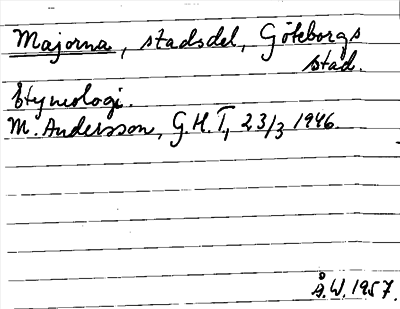 Majorna, stadsdel, Göteborgs
stad.
Etymologi.
M. Andersson, G.H.T, 23/3 1946.
Å.W. 1957.